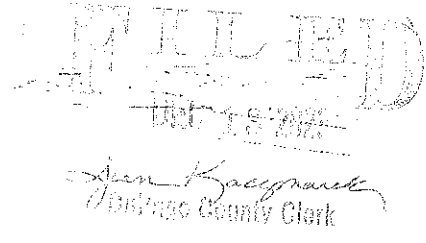 FILED
DEC 1
Jean Kaczmarek
DuPage County Clerk